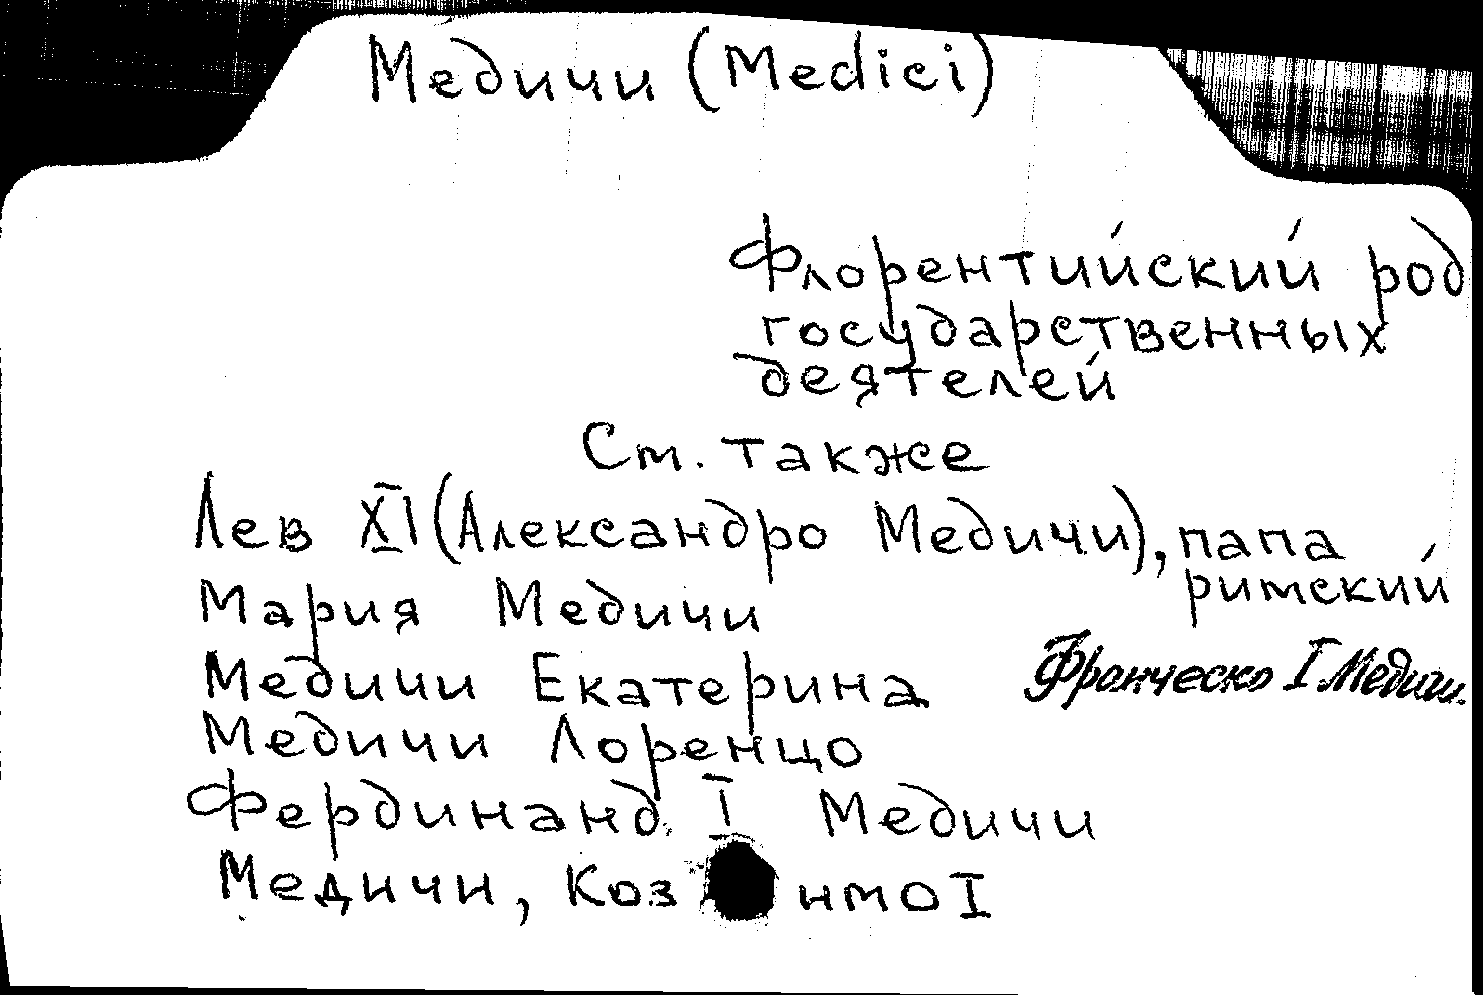 Медичи (Medici)
Флорентийский род
государственных
деятелей
См. также
Лев XI (Александро Медичи), папа
римский
Мария Медичи
Медичи Екатерина
Франческо I Медичи.
Медичи Лоренцо
Фердинанд I Медичи
Медичи, Коз имо I